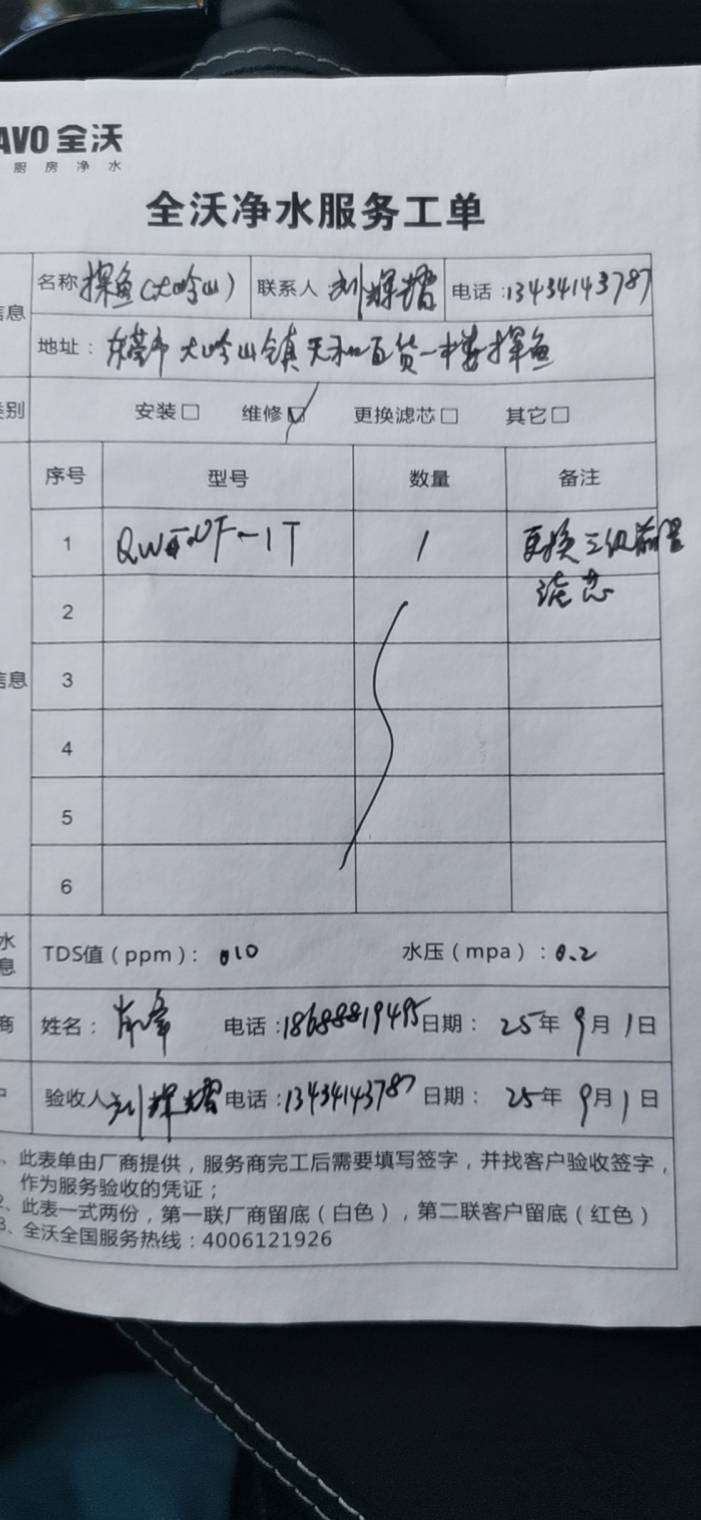 AVO 全沃
厨房净水
全沃净水服务工单
信息
名称 探鱼(大岭山) 联系人 刘辉 电话:13434143787
地址: 东莞市大岭山镇天和百货一楼探鱼
类别 安装□ 维修☑ 更换滤芯□ 其它□
序号 型号 数量 备注
1 UF-1T 1 更换三级前置
滤芯
2
信息 3
4
5
6
水
息
TDS值(ppm): 010 水压(mpa):0.2
商 姓名: 电话:18688819495 日期: 25年9月1日
户 验收人 刘辉 电话:13434143787 日期: 25年9月1日
、此表单由厂商提供,服务商完工后需要填写签字,并找客户验收签字,
作为服务验收的凭证;
2、此表一式两份,第一联厂商留底(白色),第二联客户留底(红色)
3、全沃全国服务热线:4006121926